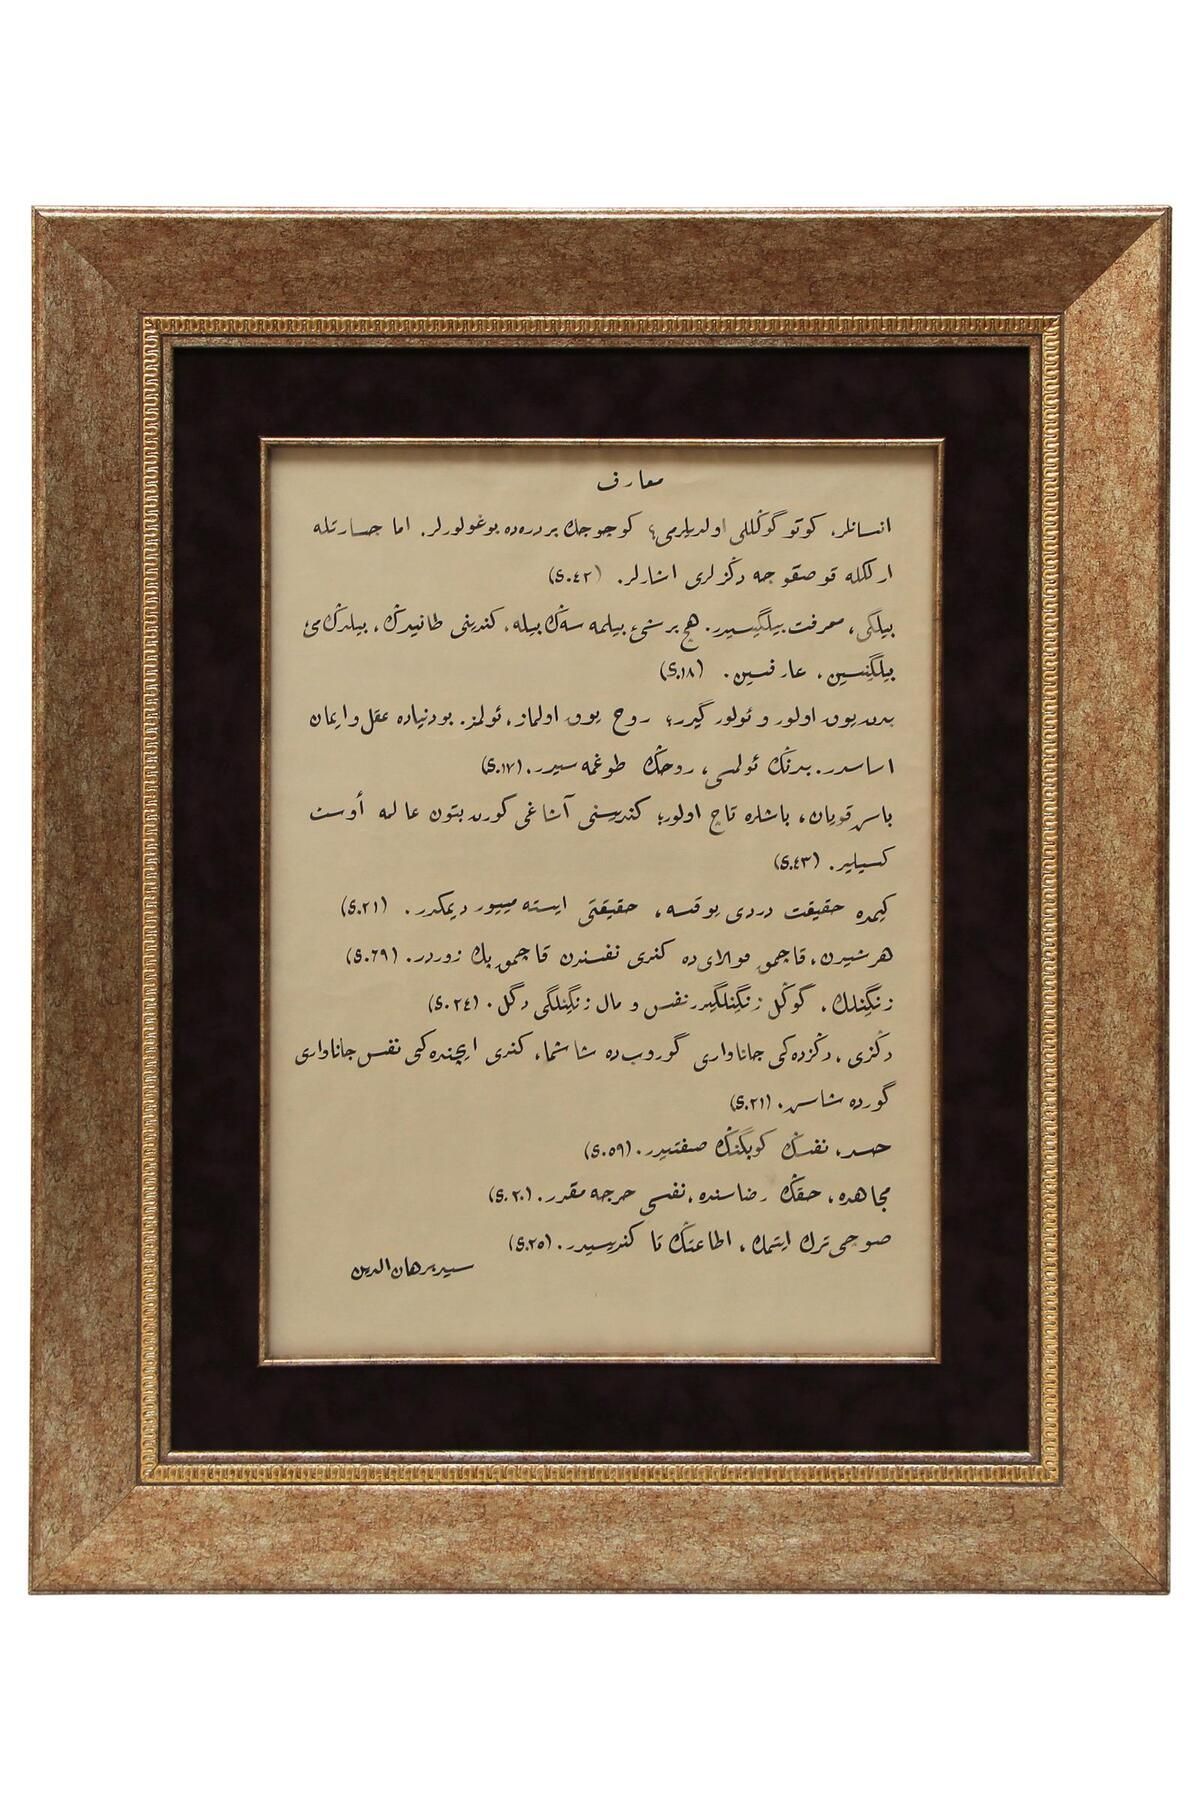 معارف
انسانلر، كوتو گوڭللى اولديلرمى؛ كوجوجك بر دره‌ده بوغولورلر. اما جسارتله
اركلكله قوصقوجه دڭزلرى اشارلر. (S.٤٢)
بيلگى، معرفت بيلگيسيدر. هچ بر شئ بيلمه سه‌ڭ بيله، كندينى طانيدڭ، بيلدڭ مى
بيلگينسين، عارفسين. (S.١٨)
بدن يوق اولور و ئولور گيدر؛ روح يوق اولماز، ئولمز. بو دنياده عقل و ايمان
اساسدر. بدنڭ ئولمسى، روحڭ طوغمه سيدر. (S.١٧)
باش قويان، باشلره تاج اولور؛ كنديسنى آشاغى كورن بتون عالمه أوست
كسيلير. (S.٤٣)
كيمده حقيقت دردى يوقسه، حقيقتى ايسته مييور ديمكدر. (S.٢١)
هرشيدن، قاچمق قولاى ده كندى نفسندن قاچمق پك زوردر. (S.٢٩)
زنگينلك، گوڭل زنگينلگيدر نفس و مال زنگينلگى دگل. (S.٢٤)
دڭزى، دڭزده‌كى جاناوارى گوروب ده شاشما، كندى ايچنده‌كى نفس جاناوارى
گورده شاش. (S.٢١)
حسد، نفسڭ كوپگنڭ صفتيدر. (S.٥٩)
مجاهده، حقڭ رضاسنده، نفسى خرجه مقدر. (S.٢٠)
صوچى ترك ايتمك، اطاعتڭ تا كنديسيدر. (S.٢٥)
سيد برهان الدين